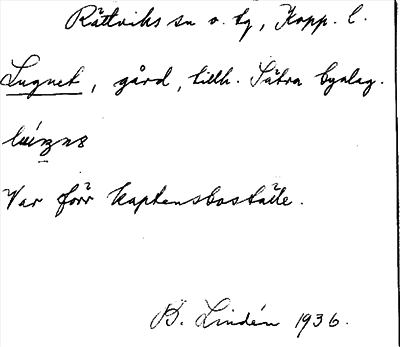 Rättviks sn o. bg, Kopp. l.
Lugnet, gård, tillh. Sätra byalag.
Var förr kaptensboställe.
B. Lindén 1936.